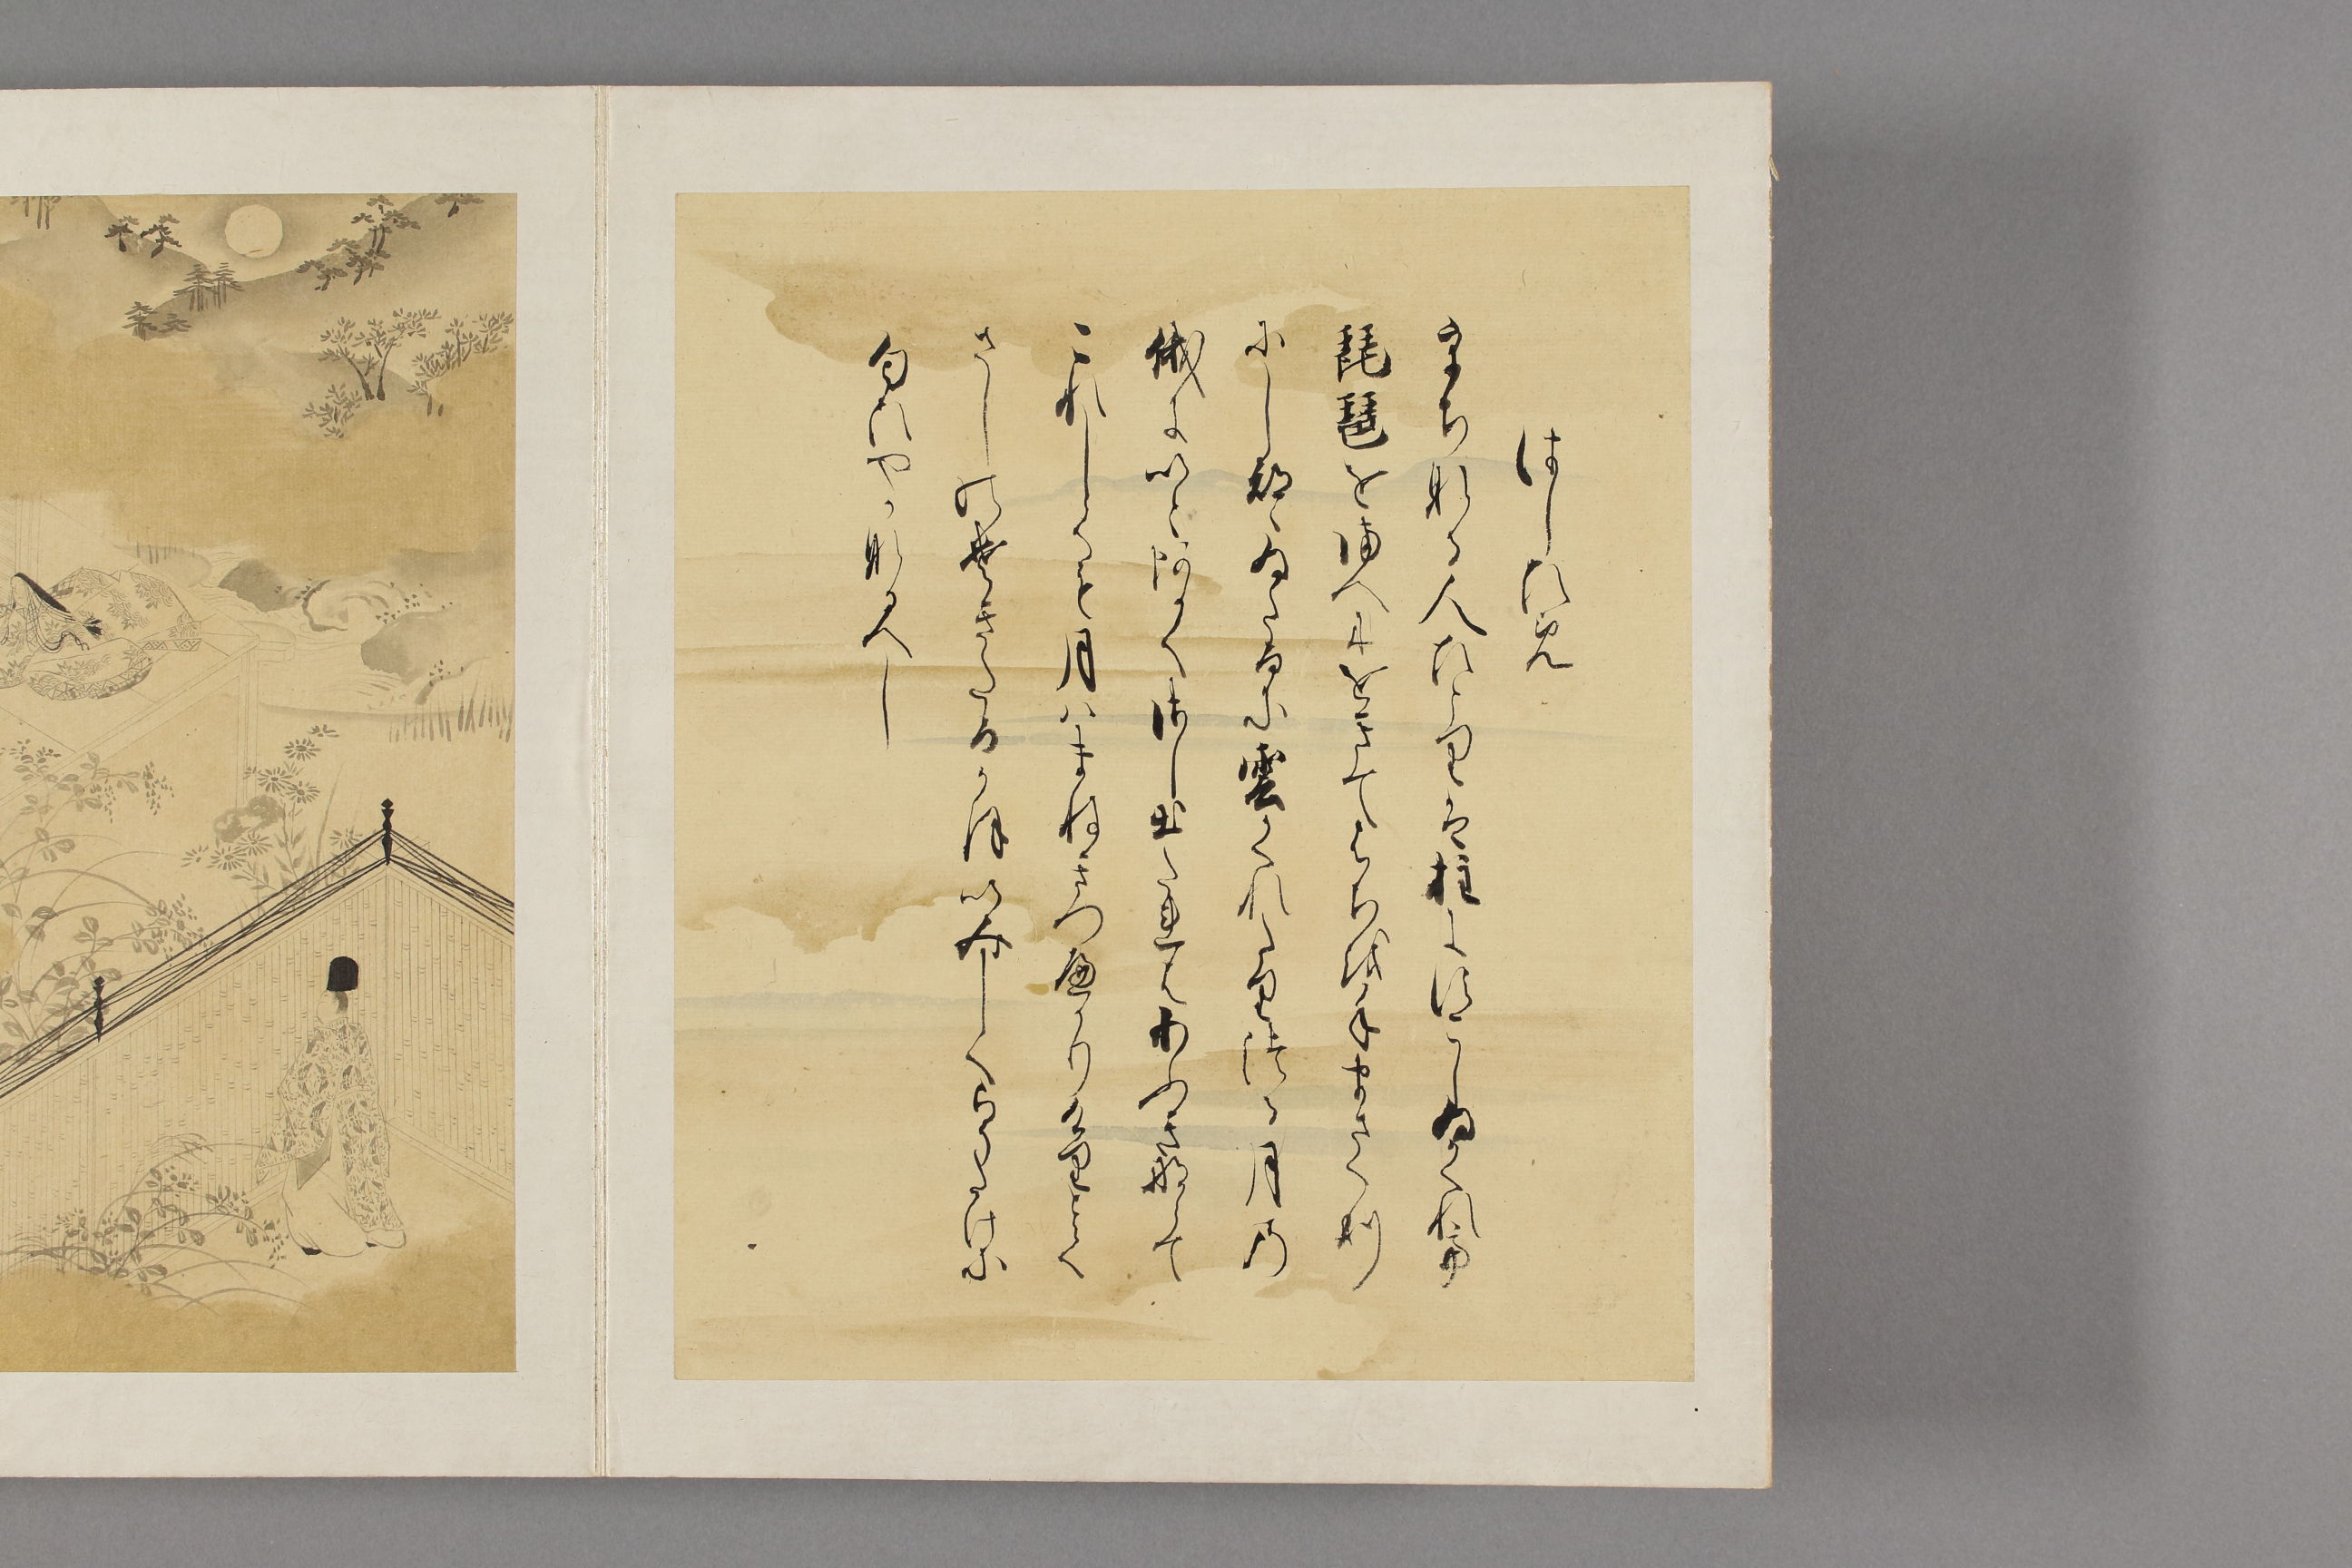 はしひめ
うちなる人ひとりは柱にすこしゐかくれて
琵琶をまへにをきてはちを手まさくり
にしつゝゐたるに雲かくれたりつる月の
俄にいとあかくさし出たれはあふきならて
これしても月はまねきつへかりけりとて
さしのそきたるかほいみしくらうたけに
匂ひやかなるへし